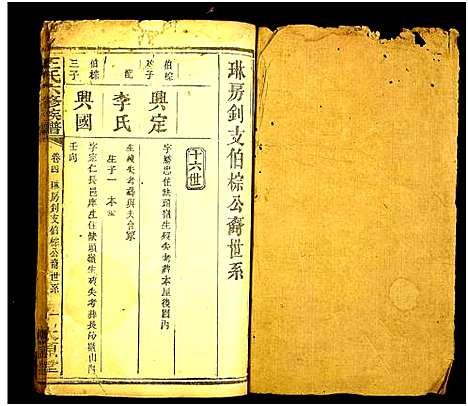 琳房釗支伯棕公裔世系
十六世
伯棕次子
興定
字勝忠住缺頭嶺生歿失考葬本屋後園內
配
李氏
生歿失考葬與夫合冢
生子一 本
伯棕三子
興國
字宗仁長邑庠生住缺頭嶺生歿失考葬長嶺山內
壬向
王氏六修族譜
卷四 琳房釗支伯棕公裔世系
一